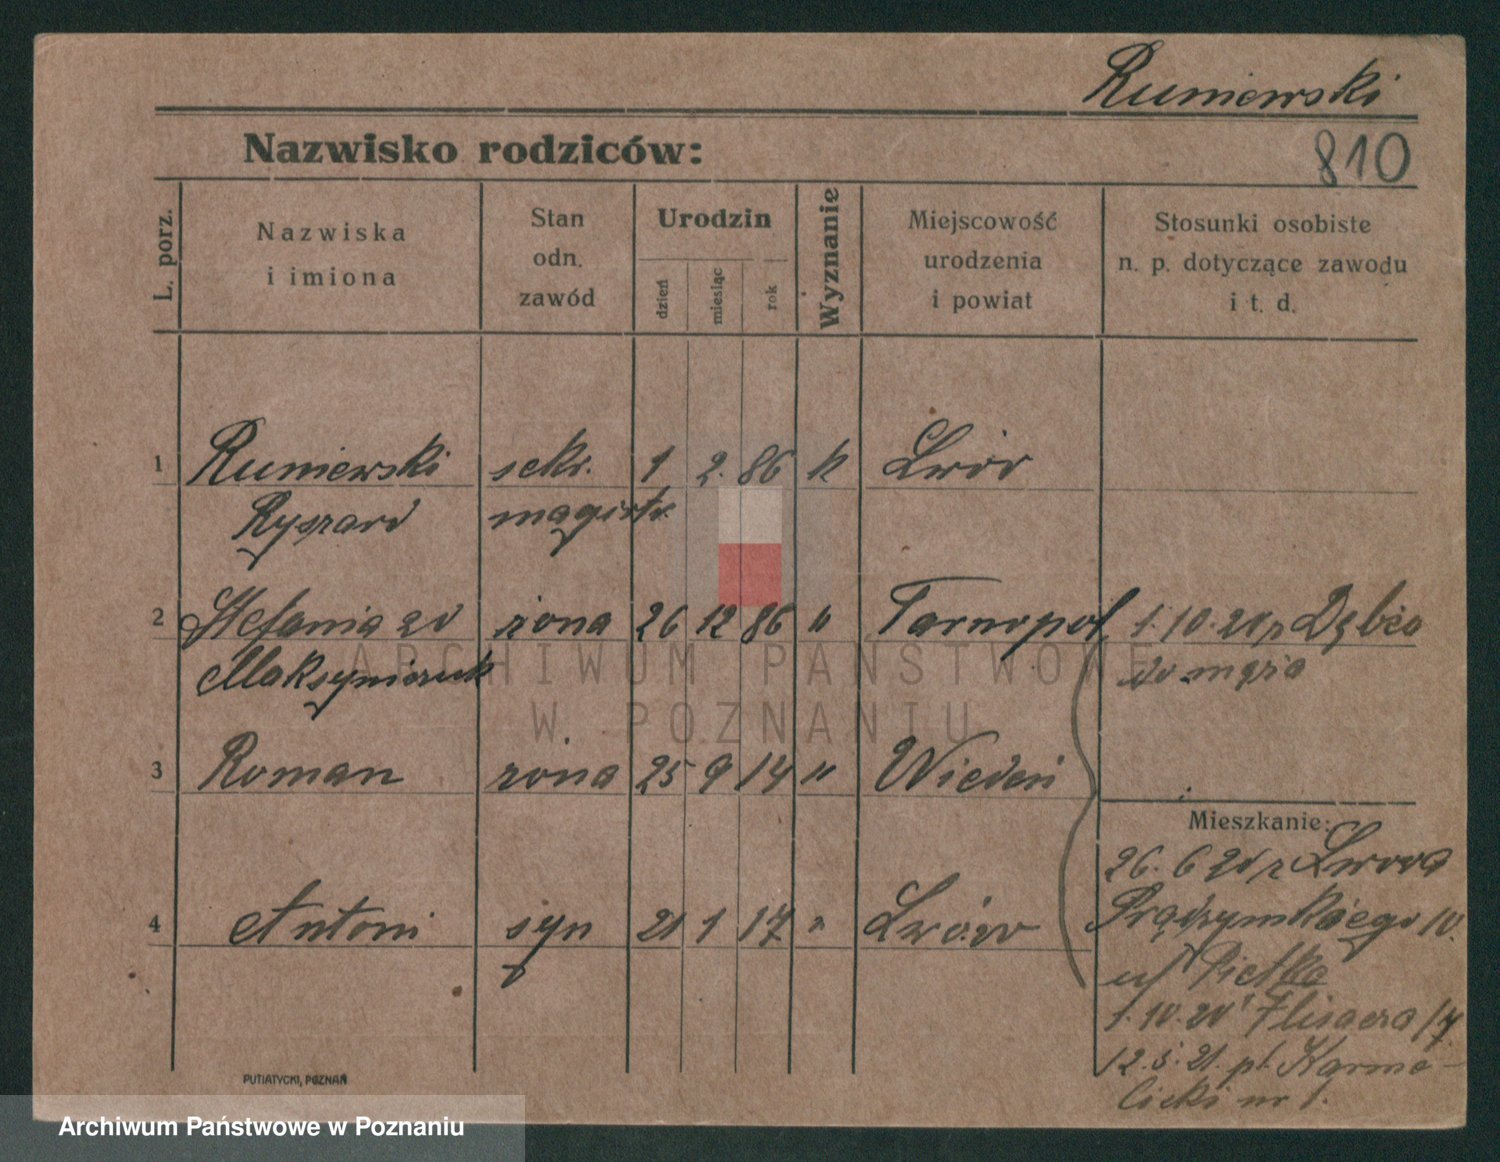 Runiewski
Nazwisko rodziców:
810
L. porz.
Nazwiska
i imiona
Stan
odn.
zawód
Urodzin
dzień
miesiąc
rok
Wyznanie
Miejscowość
urodzenia
i powiat
Stosunki osobiste
n. p. dotyczące zawodu
i t. d.
1 Runiewski sekr. 1 2. 86 k Lwów
Ryszard magistr.
2 Stefania zd żona 26 12 86 " Tarnopol 1.10.20 z Dębca
do męża
3 Roman żona 25 9 14 " Wiedeń
Mieszkanie:
26. 6 20 z Lwowa
4 Antoni syn 21 1 17 " Lwów Prądzyńskiego 10.
1.10.20 Flisacza 17
12.5.21. pl. Karme-
licki nr 1.
PUTIATYCKI, POZNAŃ
ARCHIWUM PAŃSTWOWE
W POZNANIU
Archiwum Państwowe w Poznaniu